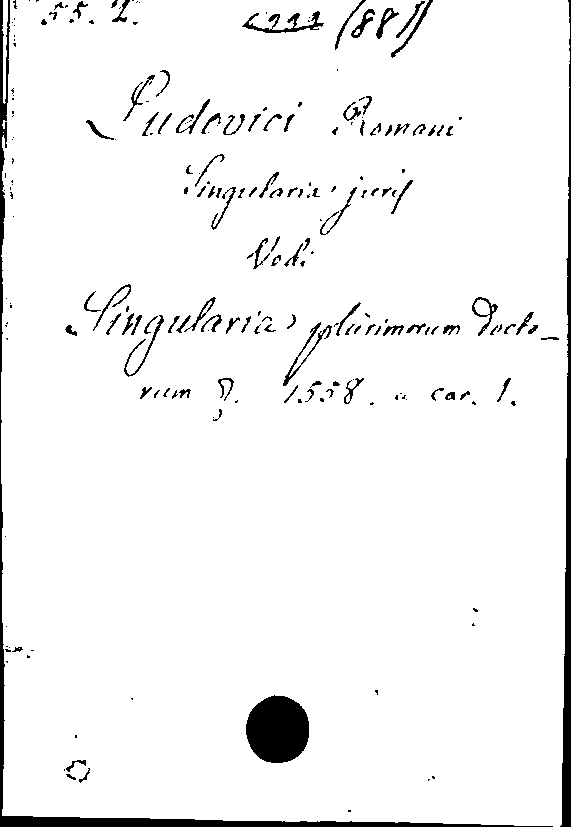 55. 2. (881)
Ludovici Romani
Singularia juris
Vedi
Singularia plurimorum Docto-
rum 1558. a car. 1.